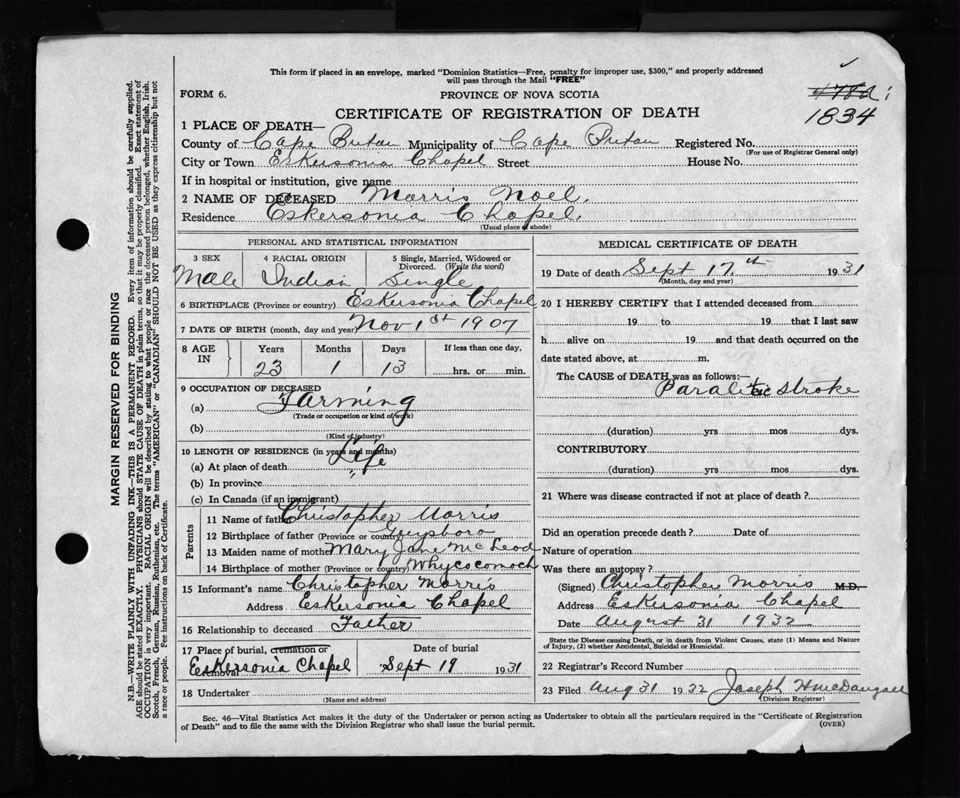 This form if placed in an envelope, marked "Dominion Statistics—Free, penalty for improper use, $300," and properly addressed
will pass through the Mail "FREE"
FORM 6.
PROVINCE OF NOVA SCOTIA
1834
CERTIFICATE OF REGISTRATION OF DEATH
1 PLACE OF DEATH—
County of Cape Breton Municipality of Cape Breton Registered No.
(For use of Registrar General only)
City or Town Eskersonia Chapel Street House No.
If in hospital or institution, give name
2 NAME OF DECEASED Morris Noel.
Residence Eskersonia Chapel.
(Usual place of abode)
PERSONAL AND STATISTICAL INFORMATION
3 SEX 4 RACIAL ORIGIN 5 Single, Married, Widowed or
Divorced. (Write the word)
Male Indian Single
6 BIRTHPLACE (Province or country) Eskersonia Chapel
7 DATE OF BIRTH (month, day and year) Nov 1st 1907
8 AGE IN Years Months Days If less than one day,
23 1 13 hrs. or min.
9 OCCUPATION OF DECEASED
(a) Farming
(Trade or occupation or kind of work)
(b)
(Kind of industry)
10 LENGTH OF RESIDENCE (in years and months)
(a) At place of death Life
(b) In province "
(c) In Canada (if an immigrant)
Parents
11 Name of father Christopher Morris
12 Birthplace of father (Province or country) Guysboro
13 Maiden name of mother Mary Jane McLeod
14 Birthplace of mother (Province or country) Whycocomoch
15 Informant's name Christopher Morris
Address Eskersonia Chapel
16 Relationship to deceased Father
17 Place of burial, cremation or removal Date of burial
Eskersonia Chapel Sept 19 1931
18 Undertaker
(Name and address)
MEDICAL CERTIFICATE OF DEATH
19 Date of death Sept 17th 1931
(Month, day and year)
20 I HEREBY CERTIFY that I attended deceased from
19 to 19 that I last saw
h alive on 19 and that death occurred on the
date stated above, at m.
The CAUSE OF DEATH was as follows:—
Paralitic stroke
(duration) yrs mos dys.
CONTRIBUTORY
(duration) yrs mos dys.
21 Where was disease contracted if not at place of death?
Did an operation precede death? Date of
Nature of operation
Was there an autopsy?
(Signed) Christopher Morris M.D.
Address Eskersonia Chapel
Date August 31 1932
State the Disease causing Death, or in death from Violent Causes, state (1) Means and Nature
of Injury, (2) whether Accidental, Suicidal or Homicidal.
22 Registrar's Record Number
23 Filed Aug 31 1932 Joseph H McDougall
(Division Registrar)
Sec. 46—Vital Statistics Act makes it the duty of the Undertaker or person acting as Undertaker to obtain all the particulars required in the "Certificate of Registration
of Death" and to file the same with the Division Registrar who shall issue the burial permit.
(OVER)
MARGIN RESERVED FOR BINDING
N.B.—WRITE PLAINLY WITH UNFADING INK—THIS IS A PERMANENT RECORD. Every item of information should be carefully supplied.
AGE should be stated EXACTLY. PHYSICIANS should STATE CAUSE OF DEATH in plain terms, so that it may be properly classified. Exact statement of
OCCUPATION is very important. RACIAL ORIGIN will be described by stating to what people or race the deceased person belonged, whether English, Irish,
Scotch, French, German, Russian, Ruthenian, etc. The terms "AMERICAN" or "CANADIAN" SHOULD NOT BE USED as they express citizenship but not
a race or people. See instructions on back of Certificate.